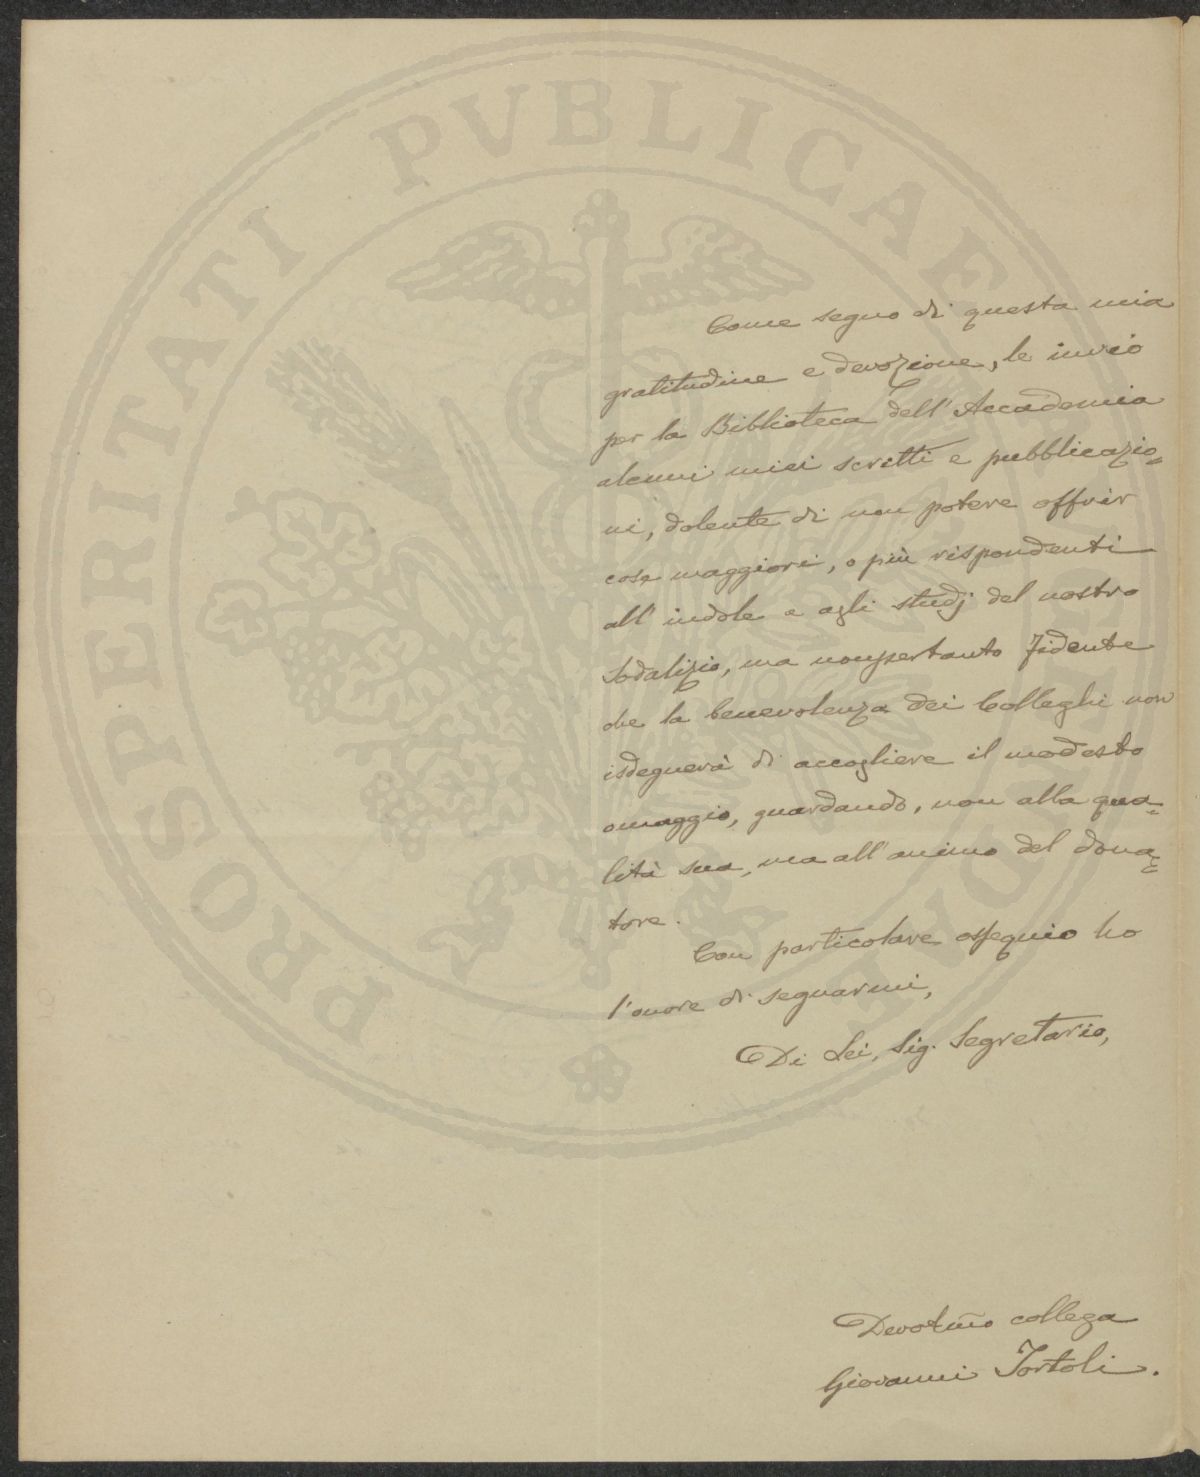 Come segno di questa mia
gratitudine e devozione, le invio
per la Biblioteca dell'Accademia
alcuni miei scritti e pubblicazio=
ni, dolente di non potere offrir
cose maggiori, o più rispondenti
all'indole e agli studj del nostro
Sodalizio, ma nonpertanto fidente
che la benevolenza dei Colleghi non
isdegnerà di accogliere il modesto
omaggio, guardando, non alla qua=
lità sua, ma all'animo del dona=
tore.
Con particolare ossequio ho
l'onore di segnarmi,
Di Lei, Sig. Segretario,
Devotm̃o collega
Giovanni Tortoli.
PROSPERITATI PVBLICAE